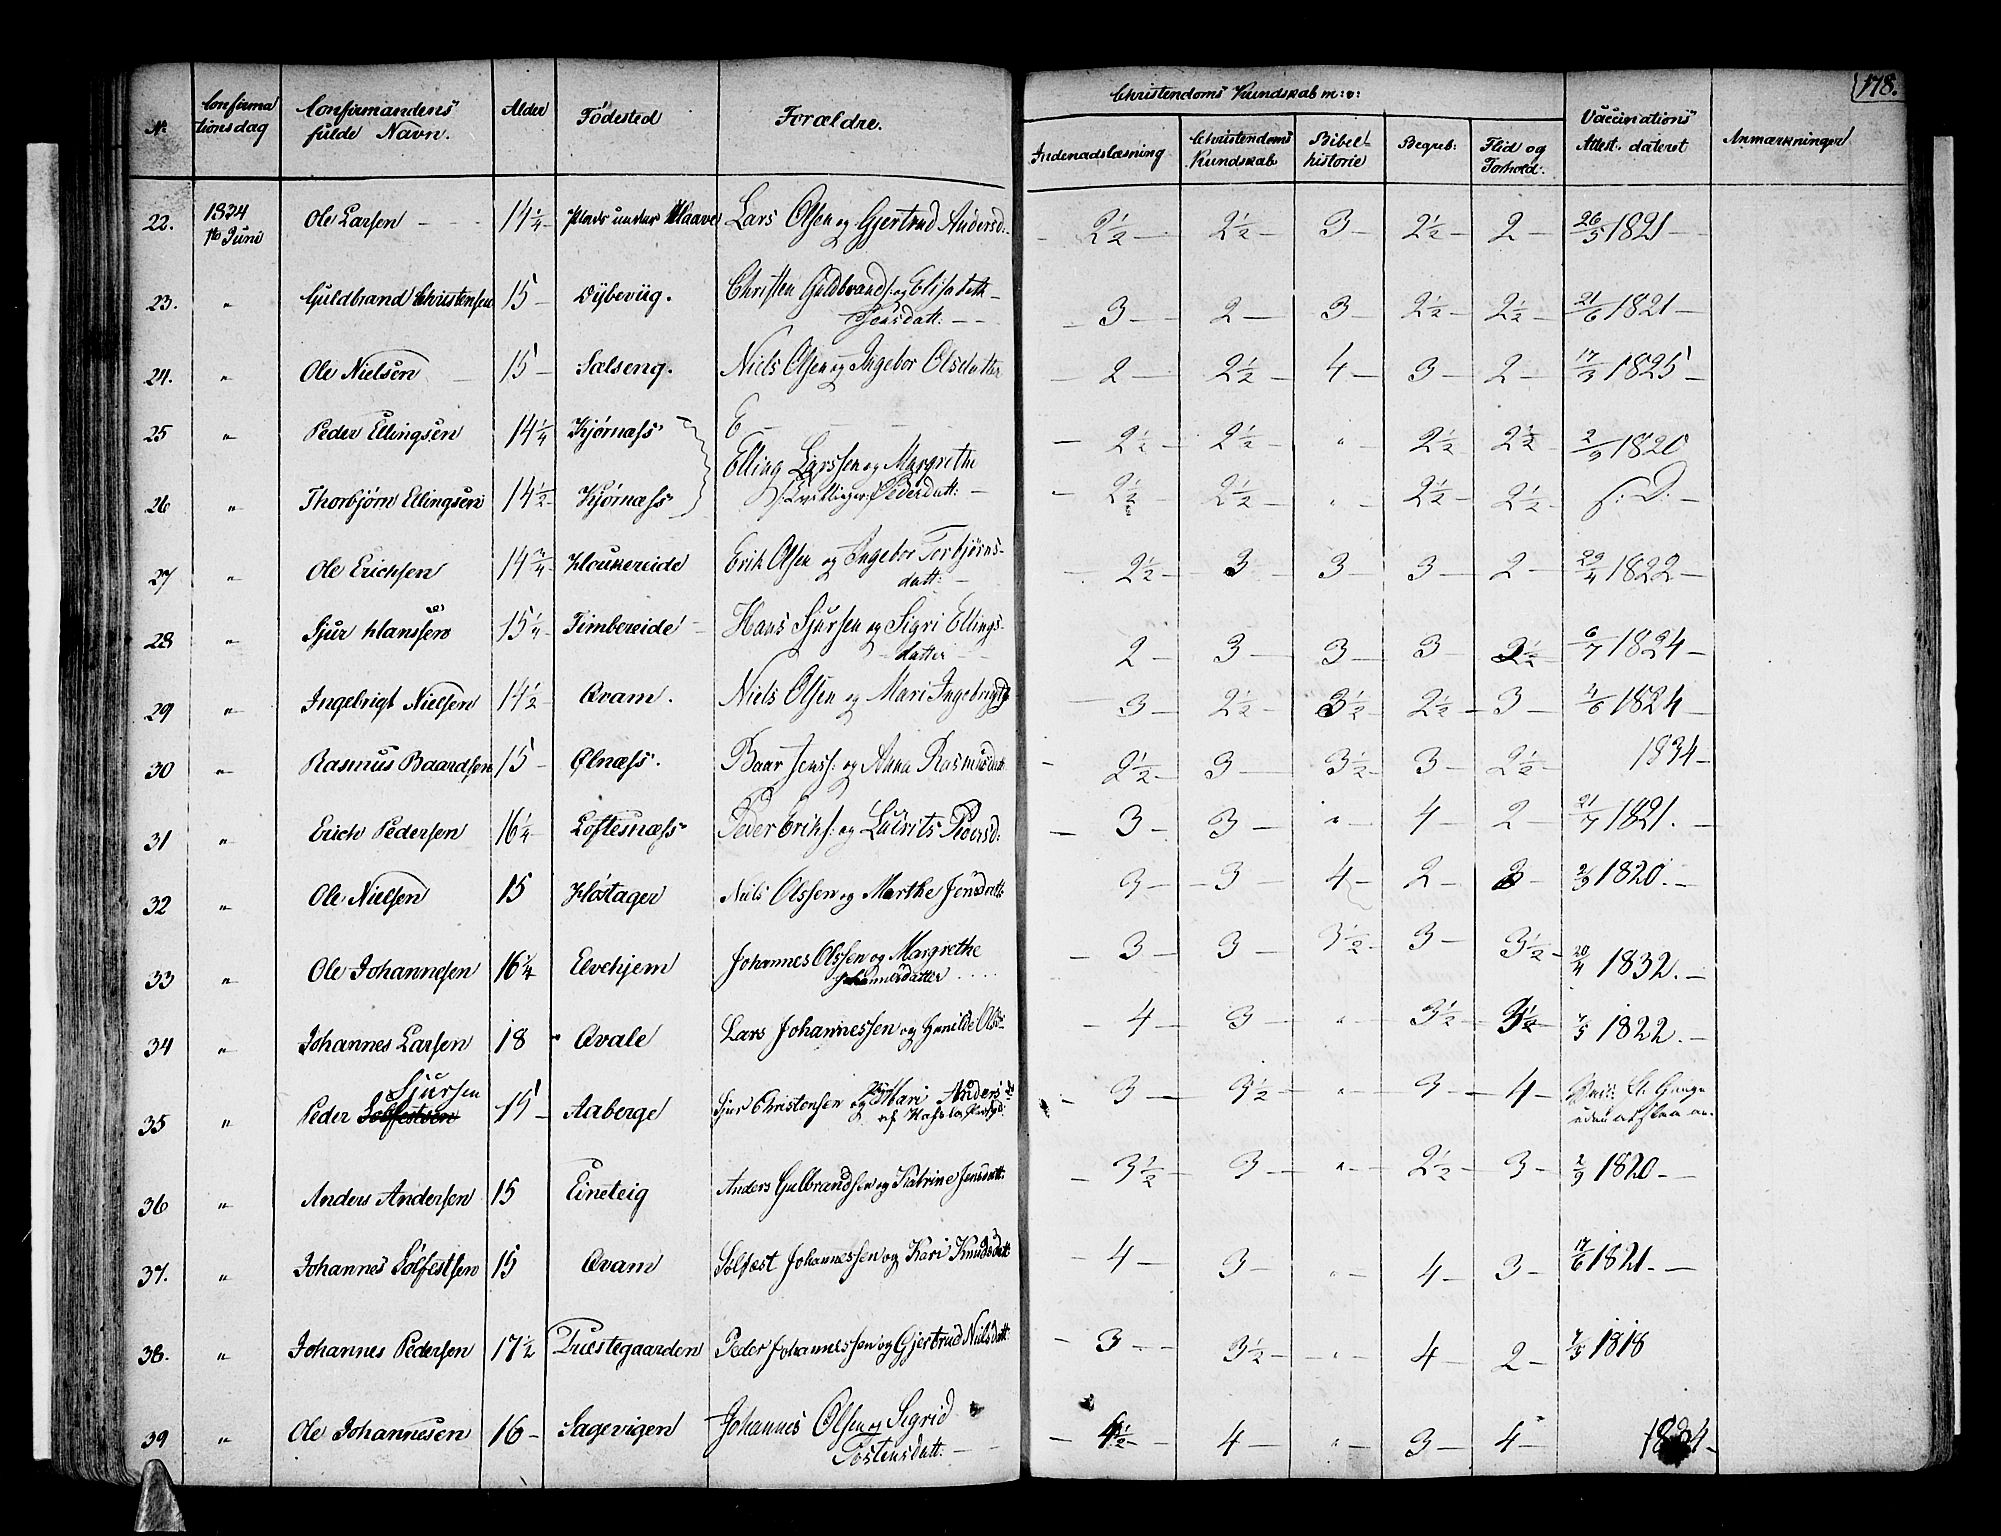 178.
No Confirmationsdag Confirmandens fulde Navn. Alder Födested Forældre. Christendoms Kundskab m:v: Vaccinations Attest. dateret Anmærkninger
Indenadslæsning Christendoms Kundskab Bibelhistorie Begreb: Flid og Forhold.
22. 1834 16 Juni Ole Larsen 14 1/4 Plads under Lars Olsen og Gjertrud Andersd. 2 1/2 2 1/2 3 2 1/2 2 26/5 1821
23. " Guldbrand Christensen 15 Dybeviig. Christen Guldbrands: og Elisabeth Jensdatt: 3 2 3 2 1/2 2 1/2 21/6 1821
24. " Ole Nielsen 15 Sælseng. Niels Olsen og Ingebor Olsdatter 2 2 1/2 4 3 2 17/3 1825
25 " Peder Ellingsen 14 1/4 Kjørnæss E 2 1/2 2 1/2 " 2 1/2 2 1/2 2/9 1820
Elling Larssen og Margrethe Pedersdatt:
26 " Thorbjörn Ellingsen 14 1/2 Kjørnæss 2 1/2 2 1/2 " 2 1/2 2 1/2
27 " Ole Erichsen 14 3/4 Erik Olsen og Ingebor Torbjørnsdatt: 2 1/2 3 3 3 2 22/4 1822
28 " Sjur Hanssen 15 1/4 Timbereide Hans Sjursen og Sigri Ellingsdatter 2 3 3 3 2 1/2 6/7 1824
29 " Ingebrigt Nielsen 14 1/2 Qvam. Niels Olsen og Mari Ingebrigtsd 3 2 1/2 3 1/2 2 1/2 3 1824
30 " Rasmus Baardsen 15 Ølnæss. Baar Jenss: og Anna Rasmusdatt 2 1/2 3 3 1/2 3 2 1/2 1834
31 " Erich Pedersen 16 1/4 Loftesnæss Peder Eriks: og 3 3 " 4 2 21/7 1821.
32 " Ole Nielsen 15 Niels Olssen og Marthe Jensdatt: 3 3 4 2 3 2/9 1820.
33 " Ole Johannesen 16 1/4 Elvehjem Johannes Olssen og Margrethe Johannesdatter 3 3 3 1/2 3 3 1/2 20/4 1832.
34 " Johannes Larsen 18 Qvale Lars Johannessen og 4 3 " 3 1/2 3 1/2 7/5 1822.
35 " Peder Solfestsen Sjursen 15 Aaberge Sjur Christensen og Mari Andersd 3 3 1/2 " 3 4
36 " Anders Andersen 15 Eineteig Anders Gulbrandsen og Katrine Jensdatt: 3 1/2 3 " 2 1/2 3 2/9 1820
37. " Johannes Solfestsen 15 Qvam Solfæst Johannessen og Kari Knudsdatt 4 3 " 4 3 17/6 1821.
38. " Johannes Pedersen 17 1/2 Præstegaarden Peder Johannessen og Gjertrud Nielsdatt: 3 3 1/2 " 4 2 7/5 1818
39 " Ole Johannesen 16 Sagevigen Johannes Olsen og Segrid Tostensdatt: 4 1/2 4 " 3 4